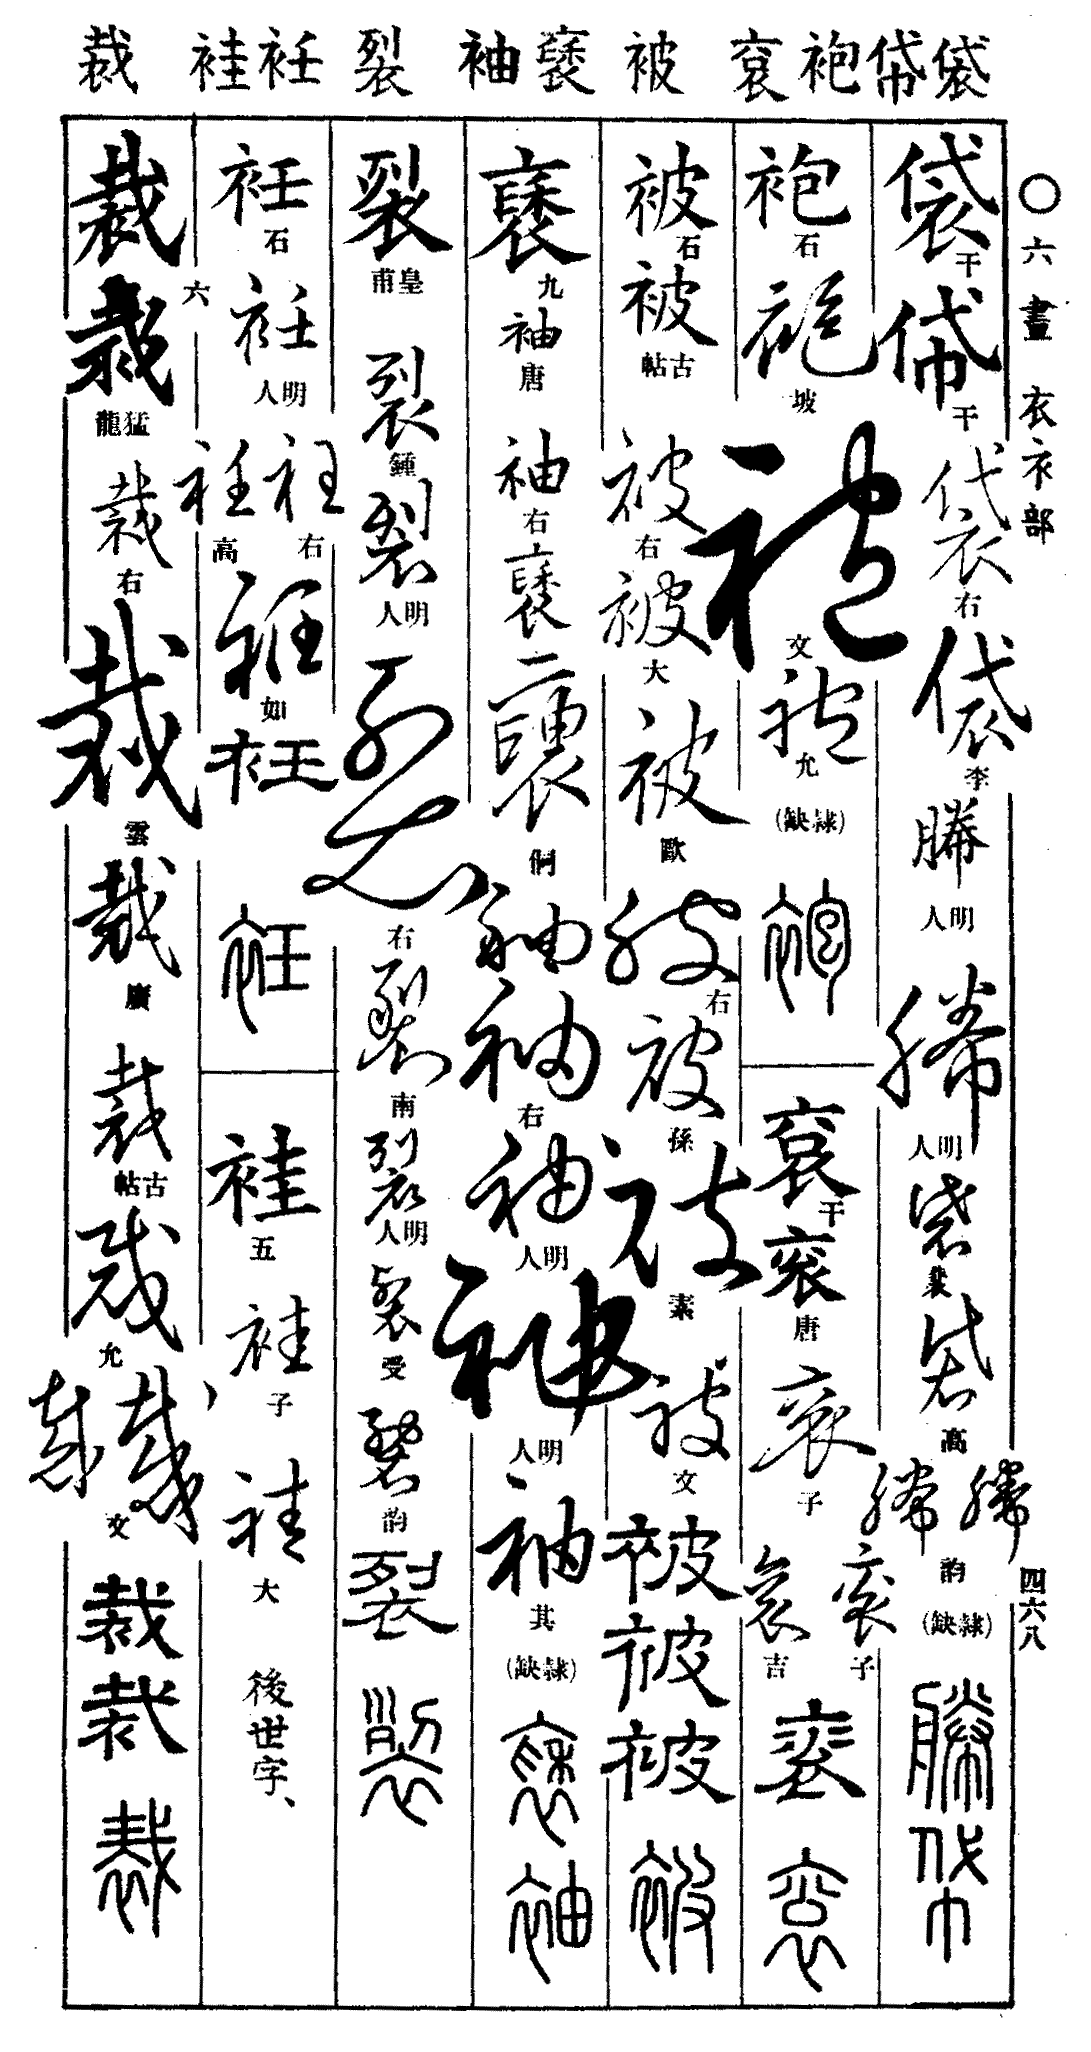 袋帒袍袞被褎袖裂衽袿裁
○六畫 衣衤部
四六八
袋 干
帒 干
袋 右
袋 李
幐 明人
幐 明人
袋
袋 高
幐 幐 韵
(隷缺)
幐
帒
袍 石
袍 坡
袍 文
袍 允
(隷缺)
袍
袞 干
袞 唐
袞 子
袞 子
袞 吉
袞
袞
被 石
被 古帖
被 右
被 大
被 歐
被 右
被 孫
被 素
被 文
被
被
被
被
褎 九
袖 唐
袖 右
褎
褎
袖
袖 右
袖 明人
袖 明人
袖 其
(隷缺)
褎
袖
裂 皇甫
裂 鍾
裂 明人
裂 右
裂 南
裂 明人
裂 受
裂 韵
裂
裂
衽 石
衽 明人
衽 右
衽 高
衽 如
衽
衽
袿 五
袿 子
袿 大
後世字、
裁 六
裁 猛龍
裁 右
裁 雲
裁 廣
裁 古帖
裁 允
裁 裁 文
裁
裁
裁